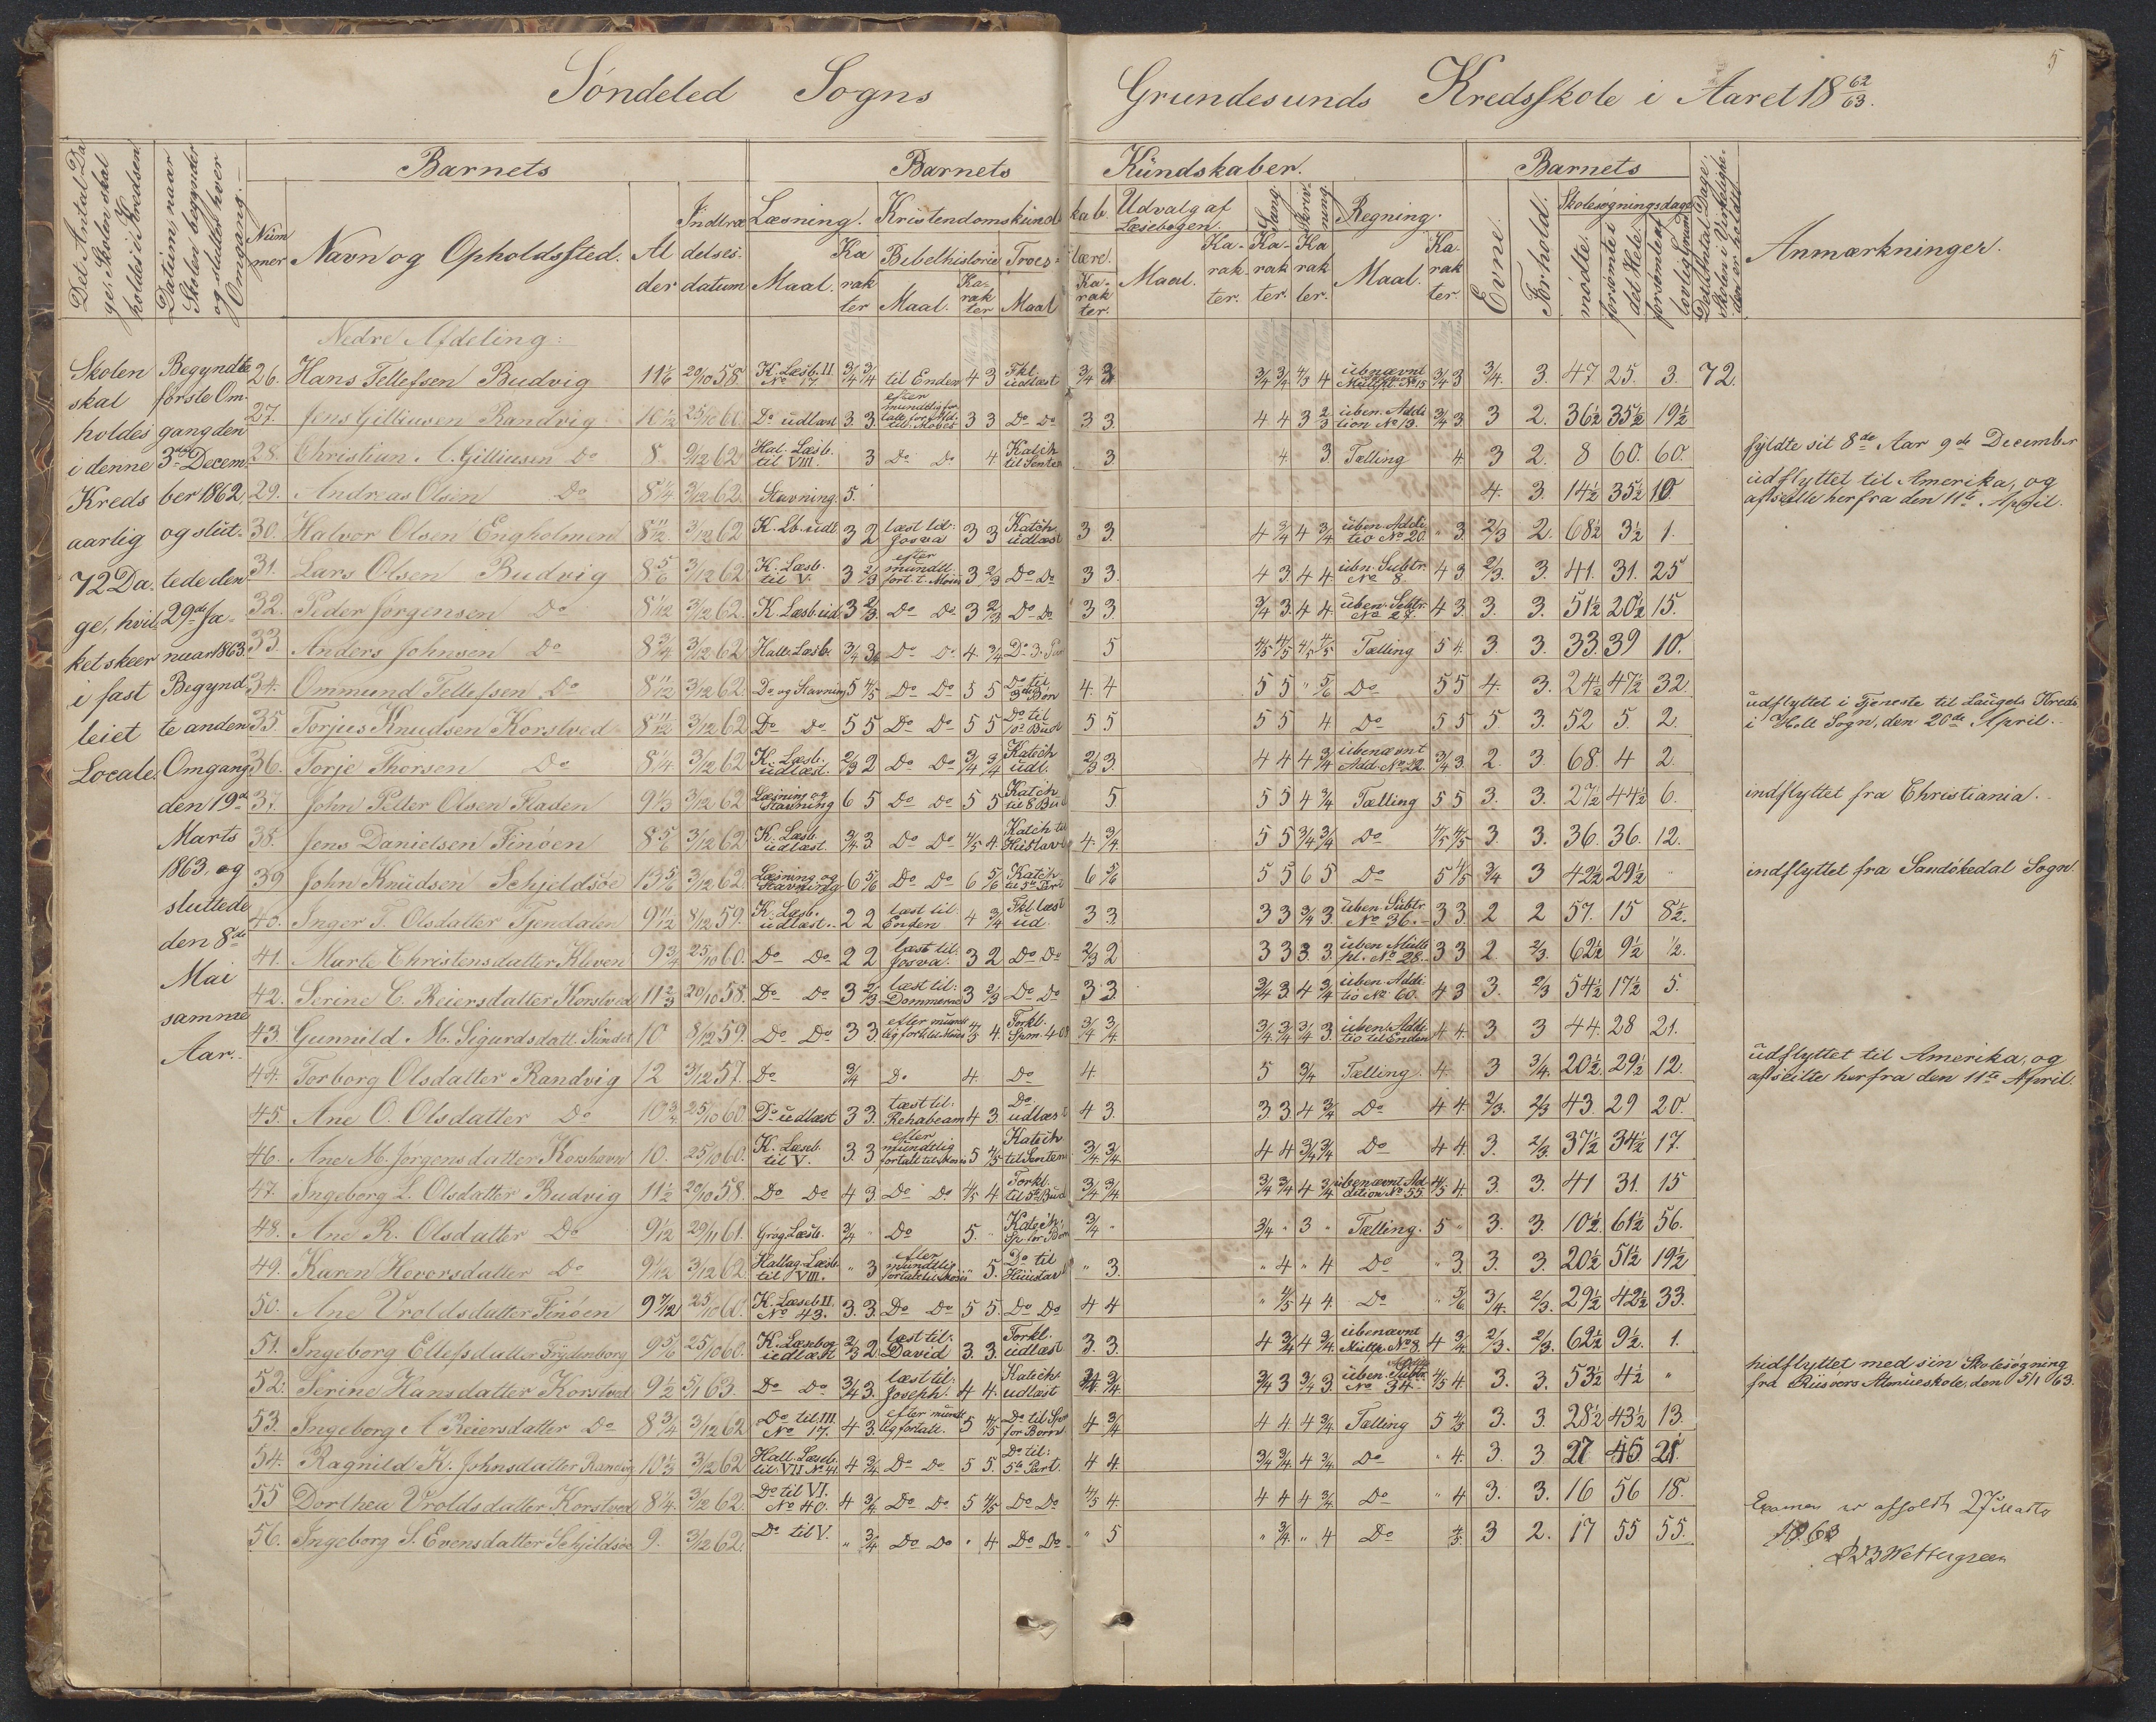 5
Søndeled Sogns Grundesunds Kredsskole i Aaret 18 62/63.
Det Antal Dage, Skolen skal holdes i Kredsen
Datum, naar Skolen begynder og slutter hver Omgang.
Barnets
Barnets Kundskaber.
Barnets
Nummer
Navn og Opholdssted.
Alder
Indtrædelsesdatum
Læsning.
Maal.
Karakter
Kristendomskundskab.
Bibelhistorie
Maal.
Karakter
Troeslære.
Maal
Karakter.
Udvalg af Læsebogen.
Maal.
Karakter.
Sang.
Karakter.
Skrivning.
Karakter.
Regning.
Maal.
Karakter
Evne.
Forhold.
Skolesøgningsdage
mødte.
forsømte i det Hele.
forsømte af lovlig Grund
Det Antal Dage, Skolen i Virkeligheden er holdt.
Anmærkninger.
Nedre Afdeling:
Skolen skal holdes i denne Kreds aarlig 72 Dage, hvilket skeer i fast leiet Locale.
Begyndte første Omgang den 3die December 1862, og sluttede den 29de Januar 1863. Begyndte anden Omgang den 19de Marts 1863, og sluttede den 8de Mai samme Aar.
26. Hans Tellefsen Budvig 11 1/6 20/10 58. K. Læsb. II No 17. 3/4 3/4 til Enden 4 3 Fkl. udlæst 3/4 3 3/4 3/4 4/3 4 ubenævnt Multipl. No 15 3/4 3 3/4. 3. 47 25. 3. 72.
27. Jens Gilliusen Randvig 10 1/2 25/10 60. Do udlæst 3. 3. efter mundtlig fortalt til Moses 3 3 Do Do 3 3. 4 4 3 2/3 uben. Addition No 13. 3/4 3. 3 2. 36 1/2 35 1/2 19 1/2
28. Christian A. Gilliusen Do 8 9/12 62 Hal. Læsb. til VIII. 3 Do Do 4 Katch til 3. 4. 3. Tælling 4. 3 2. 8 60. 60. fyldte sit 8de Aar 9de December
29. Andreas Olsen Do 8 1/4 3/12 62. Stavning. 5. 4. 3. 14 1/2 35 1/2 10. udflyttet til Amerika, og afseilte herfra den 11te April.
30. Halvor Olsen Engholmen 8 11/12 3/12 62 K. Lb. udl. 3 2 læst til: Josva 3 3 Katch udlæst 3 3. 4 3/4 4 3/4 uben. Additio No 20. " 3. 2/3 2. 68 1/2 3 1/2 1.
31. Lars Olsen Budvig 8 5/6 3/12 62 K. Læsb. til V. 3 2/3 efter mundtl. fort. t. Moses 3 2/3 Do Do 3 3. 4 3. 4 4. ubn. Subtr. No 8. 4 3. 2/3. 3. 41. 31. 25
32. Peder Jørgensen Do 8 1/12 3/12 62. K. Læsb. udl 3 2/3. Do Do. 3 2/3 Do Do 3 3. 3/4 3. 4 4. uben. Subtr. No 27. 4 3. 3. 3. 51 1/2 20 1/2 15.
33. Anders Johnsen Do 8 3/4 3/12 62 Hall. Læsb. 3/4 3/4 Do Do. 4 3/4 Do 3. 5 4/5 4/5 4/5 4/5 Tælling 5 4. 3. 3. 33. 39 10.
34. Ommund Tellefsen Do 8 11/12 3/12 62. Do og Stavning 5 4/5 Do Do 5 5 Do til 3die Bøn 4. 4 5 5 " 5/6 Do 5 5 4. 3. 24 1/2 47 1/2 32. udflyttet i Tjeneste til Laugets Kreds
35. Torjus Knudsen Korstved 8 11/12 3/12 62 Do Do 5 5 Do Do 5 5 Do til 10de Bud 5 5 5 5 4 Do 5 5 5 3. 52 5 2. i Holt Sogn, den 20de April.
36. Torje Thorsen Do 8 1/4. 3/12 62 K. Læsb. udlæst. 2/3 2 Do Do 3/4 3/4 Katech udl. 2/3 3. 4 4 4 3/4 ubenævnt Add. No 22. 3/4 3. 2. 3. 68. 4 2.
37. John Petter Olsen Fladen 9 1/3 3/12 62 Læsning og Stavning 6 5 Do Do 5 5 Katch til 8 Bud 5 5 5 4 3/4 Tælling 5 5 3. 3. 27 1/2 44 1/2 6. indflyttet fra Christiania.
38. Jens Danielsen Finøen 8 5/6 3/12 62. K. Læsb. udlæst. 3/4 3 Do Do 4/5 4. Katch til Hustavl 4. 3/4. 5 5 3/4 3/4 Do 4/5 4/5 3. 3. 36. 36. 12.
39 John Knudsen Schjeldsøe 13 5/6 3/12 62. Læsning og Stavning 6 5/6 Do Do 6 5/6 Katch til 5te Part 6 5/6 5 5 6 5 Do 5 4/5 3/4 3 42 1/2 29 1/2 " indflyttet fra Sandøkedal Sogn
40. Inger T. Olsdatter Tjendalen 9 11/12 8/12 59. K. Læsb. udlæst. 2 2 læst til Enden 4 3/4 Fkl. læst ud. 3 3. 3 3 3/4 3. uben. Subtr. No 36. 3 3. 2 2 57. 15 8 1/2.
41. Marte Christensdatter Kleven 9 3/4 25/10 60. Do Do 2 2 læst til: Josva. 3 2 Do Do 2/3 2 3 3 3. 3. uben Multipl. No 28. 3 3 2. 2/3. 62 1/2 9 1/2 1/2.
42. Serine C. Reiersdatter Korstved 11 2/3 20/10 58. Do Do 3 2/3 læst til: Dommerne 3 2/3 Do Do 3 3. 3/4 3. 4 3/4 uben Additio No 60. 4 3 3. 2/3 54 1/2 17 1/2 5.
43. Gunnild M. Sigurdsdatt. 10 8/12 59. Do Do 3 3. efter mundtlig fort. til Moses 4/3 4. Forkl. Spm. 408 3/4 3/4. 3/4 3/4 3/4 3. uben. Additio til Enden 4 4. 3 3 44. 28 21.
44. Torborg Olsdatter Randvig 12 3/12 57. Do 3/4 Do 4. Do 4 5 3/4 Tælling. 4. 3 3/4. 20 1/2. 29 1/2 12. udflyttet til Amerika, og afseilte herfra den 11te April.
45. Ane O. Olsdatter Do 10 3/4. 25/10 60. Do udlæst 3 3. læst til: Rehabeam 4 3. Do udlæst 4 3. 3 3 4 3/4 Do 4 4. 2/3. 2/3 43. 29 20.
46. Ane M. Jørgensdatter Korshavn 10. 25/10 60. K. Læseb. til V. 3. 3 efter mundtlig fortalt til Moses 5 4/5 Katech til 3/4 3/4. 4 4 3/4 3/4 Do 4 4. 3. 2/3. 37 1/2 34 1/2 17.
47. Ingeborg L. Olsdatter Budvig 11 1/2 20/10 58. Do Do 4 3. Do Do. 4/5 4 Forkl. til 5te Bud 3/4 3/4. 3/4 3/4 4 3/4 ubenævnt Addition No 55. 4/5 4. 3. 3. 41 31. 15
48. Ane R. Olsdatter Do 9 1/12 29/11 61. Grøg. Læsb. 3/4 " Do 5. " Katech. 3/4 " 3/4 " 3 " Tælling. 5 " 3. 3. 10 1/2. 61 1/2 56.
49. Karen Hovorsdatter Do 9 1/12 3/12 62. Hallag. Læsb til VIII. " 3 efter mundtlig fortalt til Moses " 5. Do til Huustavl " 3. " 4 " 4 Do " 3. 3. 3. 20 1/2 51 1/2 19 1/2
50. Ane Vroldsdatter Finøen 9 7/12 25/10 60. K. Læseb II. No 43. 3. 3. Do Do 5 5. Do Do 4 4 " 4/5 4 4. Do " 5/6 3/4. 2/3. 29 1/2 42 1/2 33.
51. Ingeborg Ellefsdatter Frydenborg 9 5/6 25/10 60. K. Læsebog udlæst 2/3 2. læst til: David 3. 3. Forkl. udlæst 3. 3. 4 3/4 4 3/4. ubenævnt Multp. No 8. 4 3/4. 2/3. 2/3. 62 1/2 9 1/2. 1.
52. Serine Hansdatter Korstved 9 1/2 5/1 63. Do Do 3/4 3. læst til: Joseph. 4 4. Katech. udlæst 3/4. 3/4 3 3/4 3. uben. Subtr. No 34. 4/5 4. 3. 3. 53 1/2 4 1/2 " hidflyttet med sin Skolesøgning fra Riisøers Almueskole, den 5/1 63.
53. Ingeborg A Reiersdatter Do 8 3/4 3/12 62 Do til III. No 17. 4 3. efter mundtlig fortalt. 5 4/5 Do til for Børn 4 3/4 4 4. 4 3/4. Tælling 5 4/5. 3. 3. 28 1/2 43 1/2 13.
54. Ragnild K. Johnsdatter Randvig 10 1/3 3/12 62 Hall. Læseb. til VII No 41. 4 3/4. Do Do 5 5. Do til: 5te Part. 4 4. 3/4 3/4. 4 3/4 Do " 4. 3. 3 27 45 21.
55 Dorthea Vroldsdatter Korstved 8 1/4. 3/12 62. Do til VI. No 40. 4 3/4. Do Do 5 4/5 Do Do 4/5 4. 4 4 4 3/4. Do " 4 3. 3. 16 56 18.
56. Ingeborg S. Evensdatter Schjeldsøe 9. 3/12 62. Do til V. " 3/4 Do Do " 4 Do Do " 5 " 3/4 " 4 Do 4/5. 3 2. 17 55 55.
Examen er afholdt 27 Marts
1863
Wettergreen